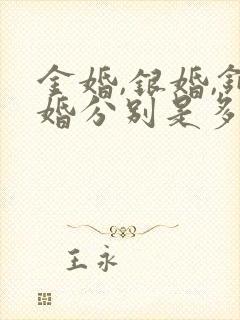 金婚,银婚,
婚分别是多
王永